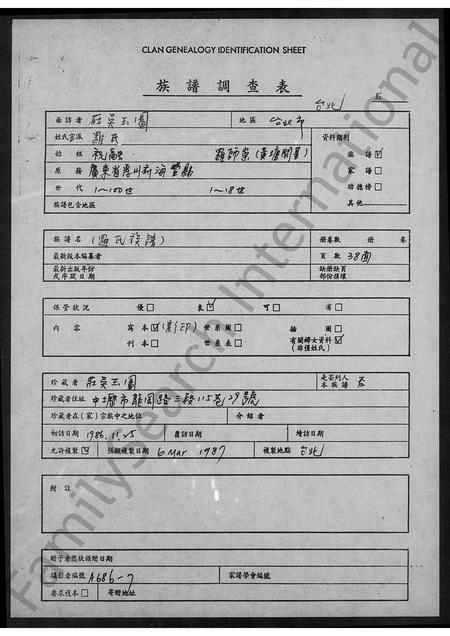 CLAN GENEALOGY IDENTIFICATION SHEET
族譜調查表
台北
面訪者 莊吳玉圖 地區 台北市
姓氏宗派 羅氏 資料類別
始祖 祝融 羅師宗 (黃塘開基) 族譜☑
原務 廣東省惠州府海豐縣 家譜□
世代 1~100世 1~18世 功德榜□
族譜包含地區 其他
族譜名 (羅氏族譜) 册卷數 册 卷
最新版本編纂者 頁數 38面
最新出版年份 缺册缺頁
或序跋日期 部份損壞
保管狀況 優□ 良☑ 可□ 劣□
內容 寫本☑(影印) 世系圖□ 插圖□
刊本□ 世系表□ 有關婦女資料☑
(非僅姓氏)
珍藏者 莊吳玉圖 是否列入本族譜 否
珍藏者住址 中壢市龍岡路三段115巷29號
珍藏者在(家)宗族中之地位 介紹者
初訪日期 1986.11.25 覆訪日期 續訪日期
允許複製☑ 預擬複製日期 6 Mar 1987 複製地點 台北
附註
贈予者獎狀頒贈日期
攝影者編號 A686-7 家譜學會編號
要求複本□ 寄贈地址
FamilySearch International